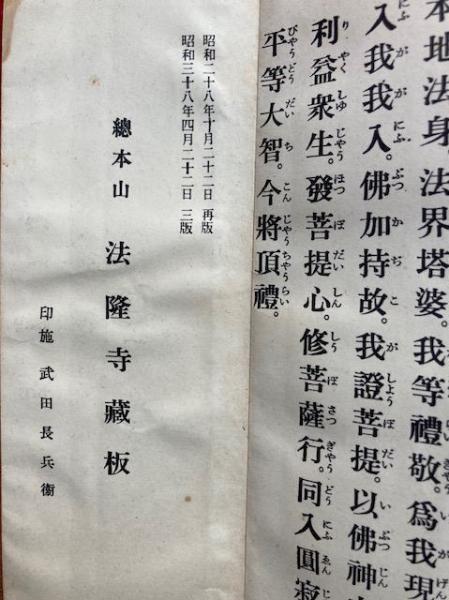 本地法身。法界塔婆。我等禮敬。爲我現
入我我入。佛加持故。我證菩提。以佛神
利益衆生。發菩提心。修菩薩行。同入圓寂
平等大智。今將頂禮。
昭和二十八年十月二十二日 再版
昭和三十八年四月二十二日 三版
總本山 法隆寺藏板
印施 武田長兵衞